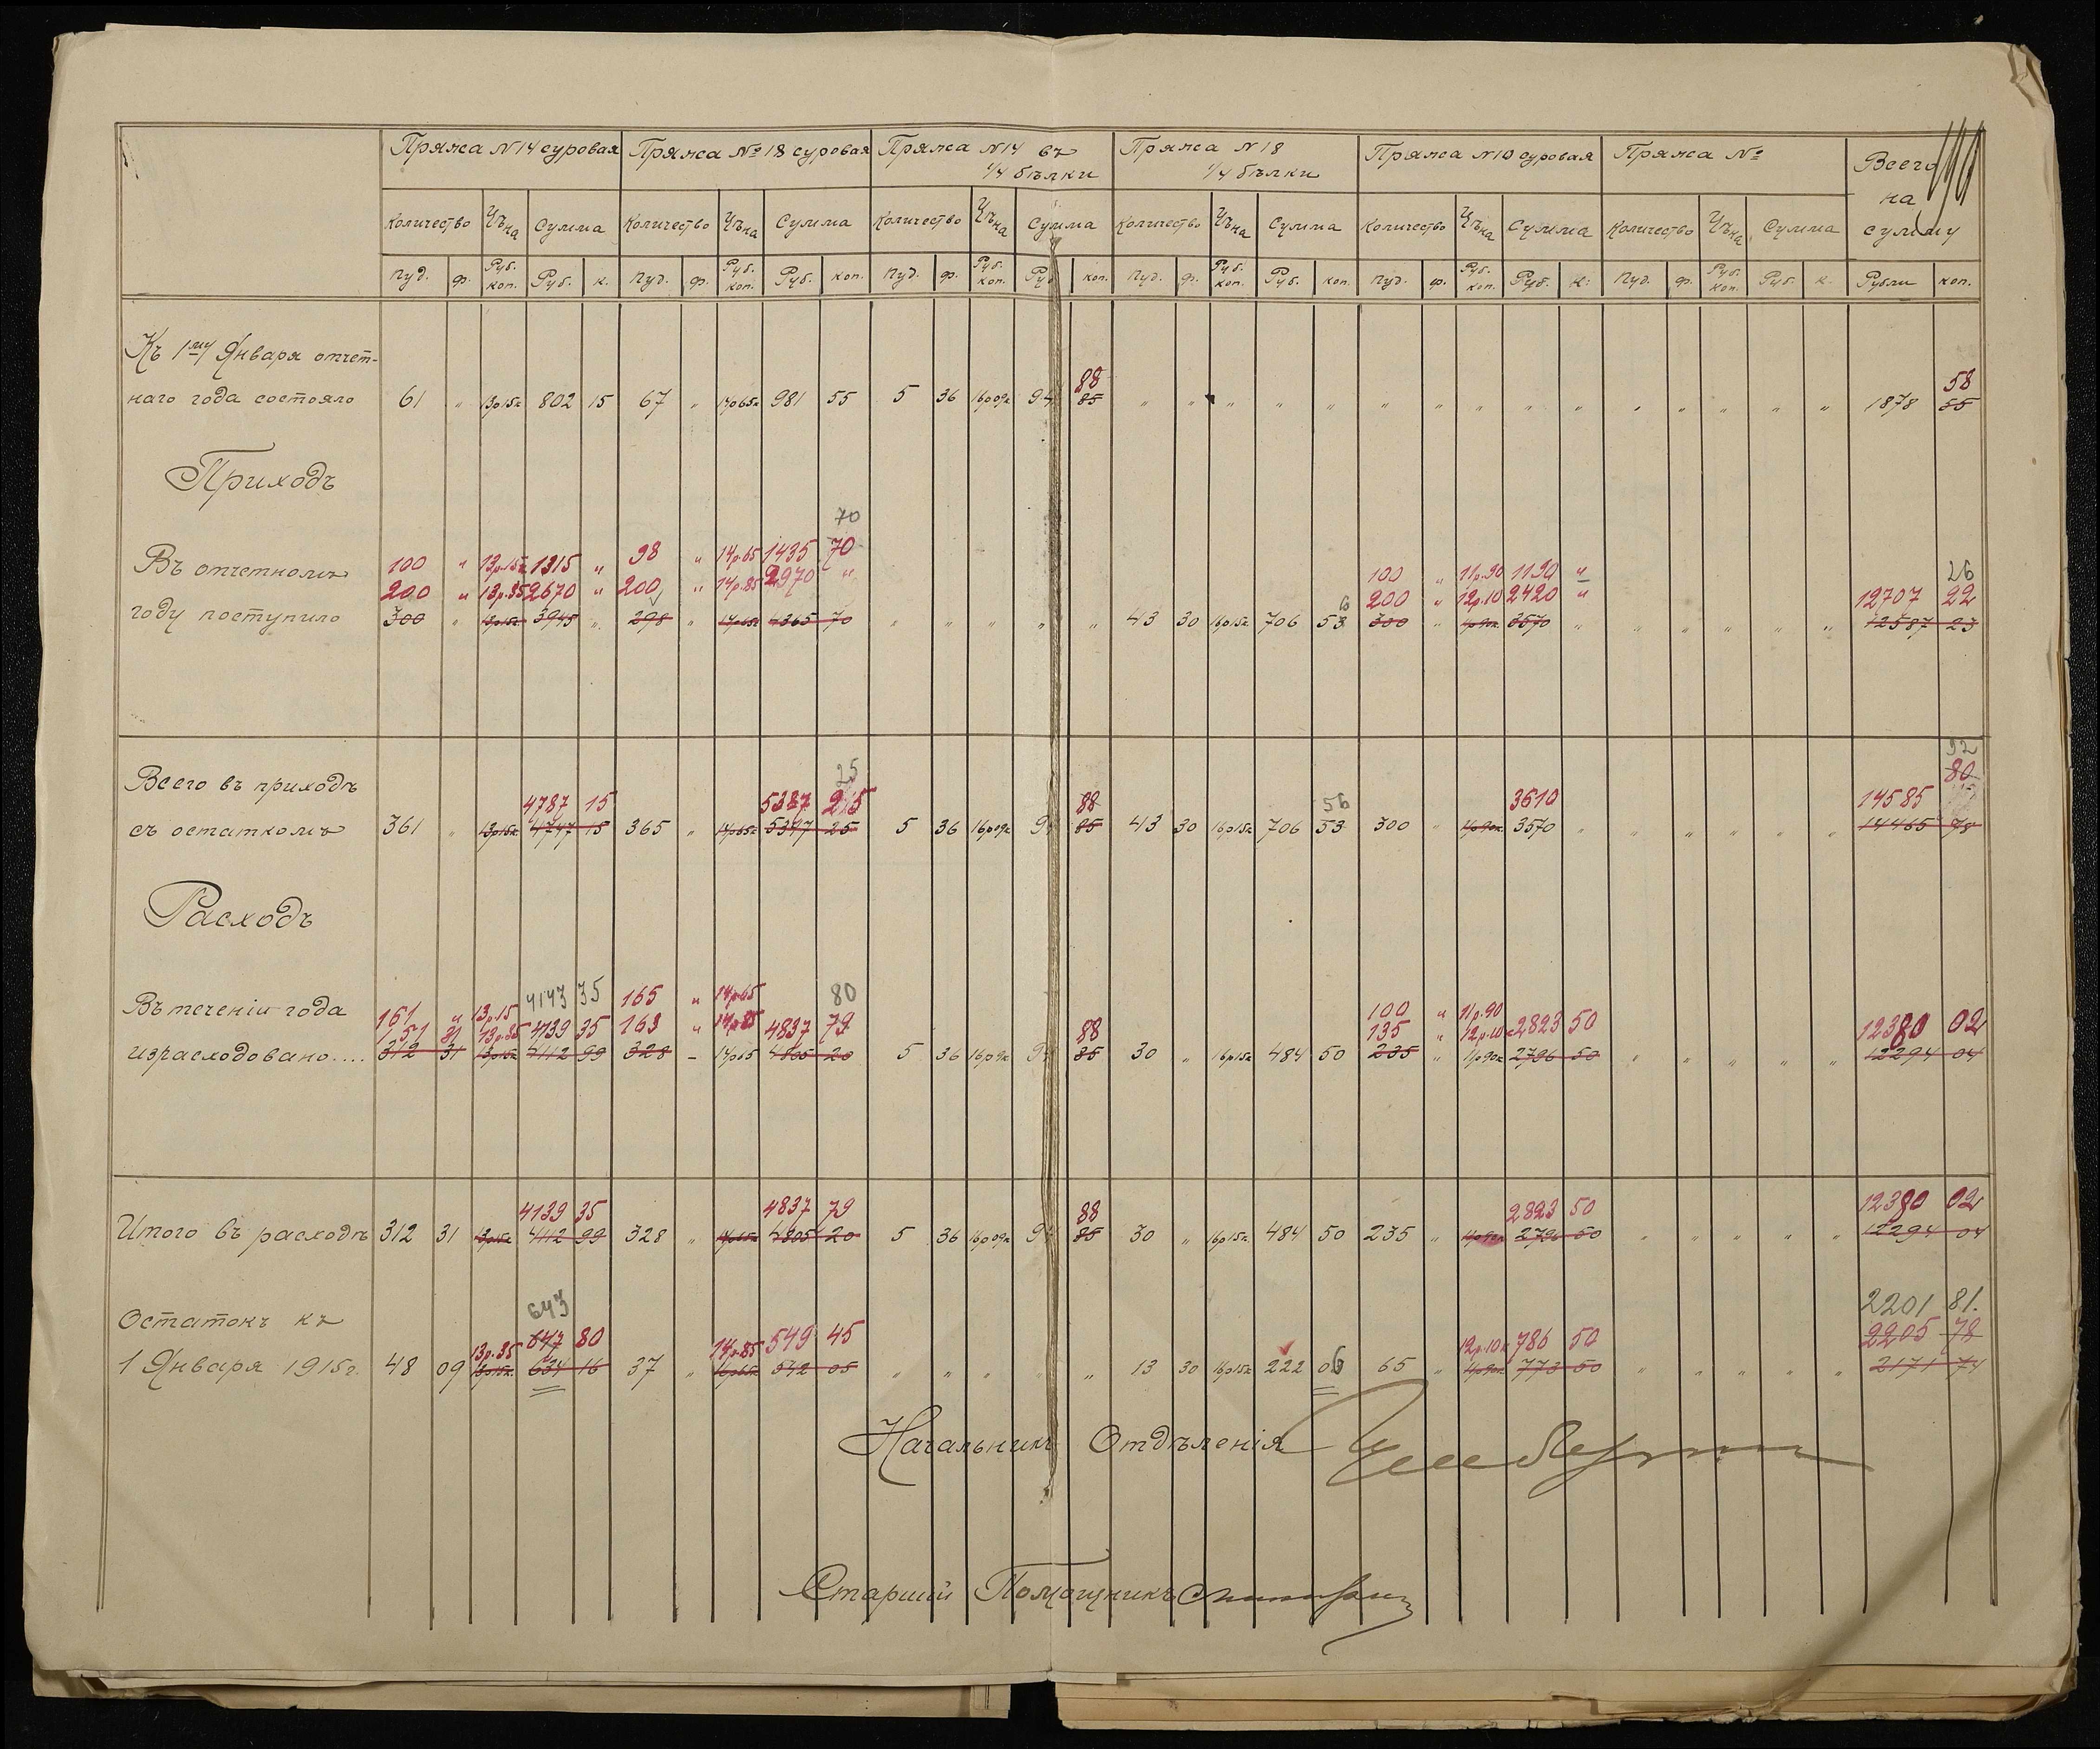 Пряжа N14 суровая Пряжа № 18 суровая Пряжа N14 въ 1/4 бѣлки Пряжа N18 1/4 бѣлки Пряжа N10 суровая Пряжа № Всего на сумму
Количество Цѣна Сумма Количество Цѣна Сумма Количество Цѣна Сумма Количество Цѣна Сумма Количество Цѣна Сумма Количество Цѣна Сумма
Пуд. ф. Руб. коп. Руб. к. Пуд. ф. Руб. коп. Руб. коп. Пуд. ф. Руб. коп. Ру коп. Пуд. ф. Руб. коп. Руб. коп. Пуд. ф. Руб. коп. Руб. к. Пуд. ф. Руб. коп. Руб. к. Рубли коп.
Къ 1му Января отчет-
88 58
наго года состояло 61 " 13р15к 802 15 67 " 14р65к 981 55 5 36 16р09к 94 85 " " " " " " " " " " " " " " " 1878 55
Приходъ
70
Въ отчетномъ 100 " 13р.15к 1315 " 98 " 14р.65 1435 70 100 " 11р.90 1190 " 26
200 " 13р.35 2670 " 200 " 14р.85 2970 " 200 " 12р.10 2420 " 12707 22
году поступило 300 " 13р15к 3945 " 298 " 14р65к 4365 70 " " " " " 43 30 16р15к 706 53 6 300 " 11р90к 3570 " " " " " " 12587 23
92
25 80
Всего въ приходѣ 4787 15 5387 25 88 56 3610 14585
съ остаткомъ 361 " 13р15к 4747 15 365 " 14р65к 5347 25 5 36 16р09к 94 85 43 30 16р15к 706 53 300 " 11р90к 3570 " " " " " " 14465 78
Расходъ
4143 35 80
Въ теченіи года 161 " 13р.15 165 " 14р.65 100 " 11р.90
151 31 13р.35 4139 35 163 " 14р.85 4837 79 88 135 " 12р.10к 2823 50 12380 02
израсходовано.... 312 31 13р15к 4112 99 328 – 14р65 4805 20 5 36 16р09к 94 85 30 " 16р15к 484 50 235 " 11р90к 2796 50 " " " " " 12294 04
4139 35 4837 79 88 2823 50 12380 02
Итого въ расходѣ 312 31 13р15к 4112 99 328 " 14р65к 4805 20 5 36 16р09к 94 85 30 " 16р15к 484 50 235 " 11р90к 2796 50 " " " " " 12294 04
643 2201 81.
Остатокъ къ 13р.35 647 80 14р.85 549 45 12р.10к 786 50 2205 78
1 Января 1915г. 48 09 13р15к 634 16 37 " 14р65к 542 05 " " " " 13 30 16р15к 222 06 65 " 11р90к 773 50 " " " " " 2171 74
Начальникъ Отдѣленія
Старшій Помощникъ